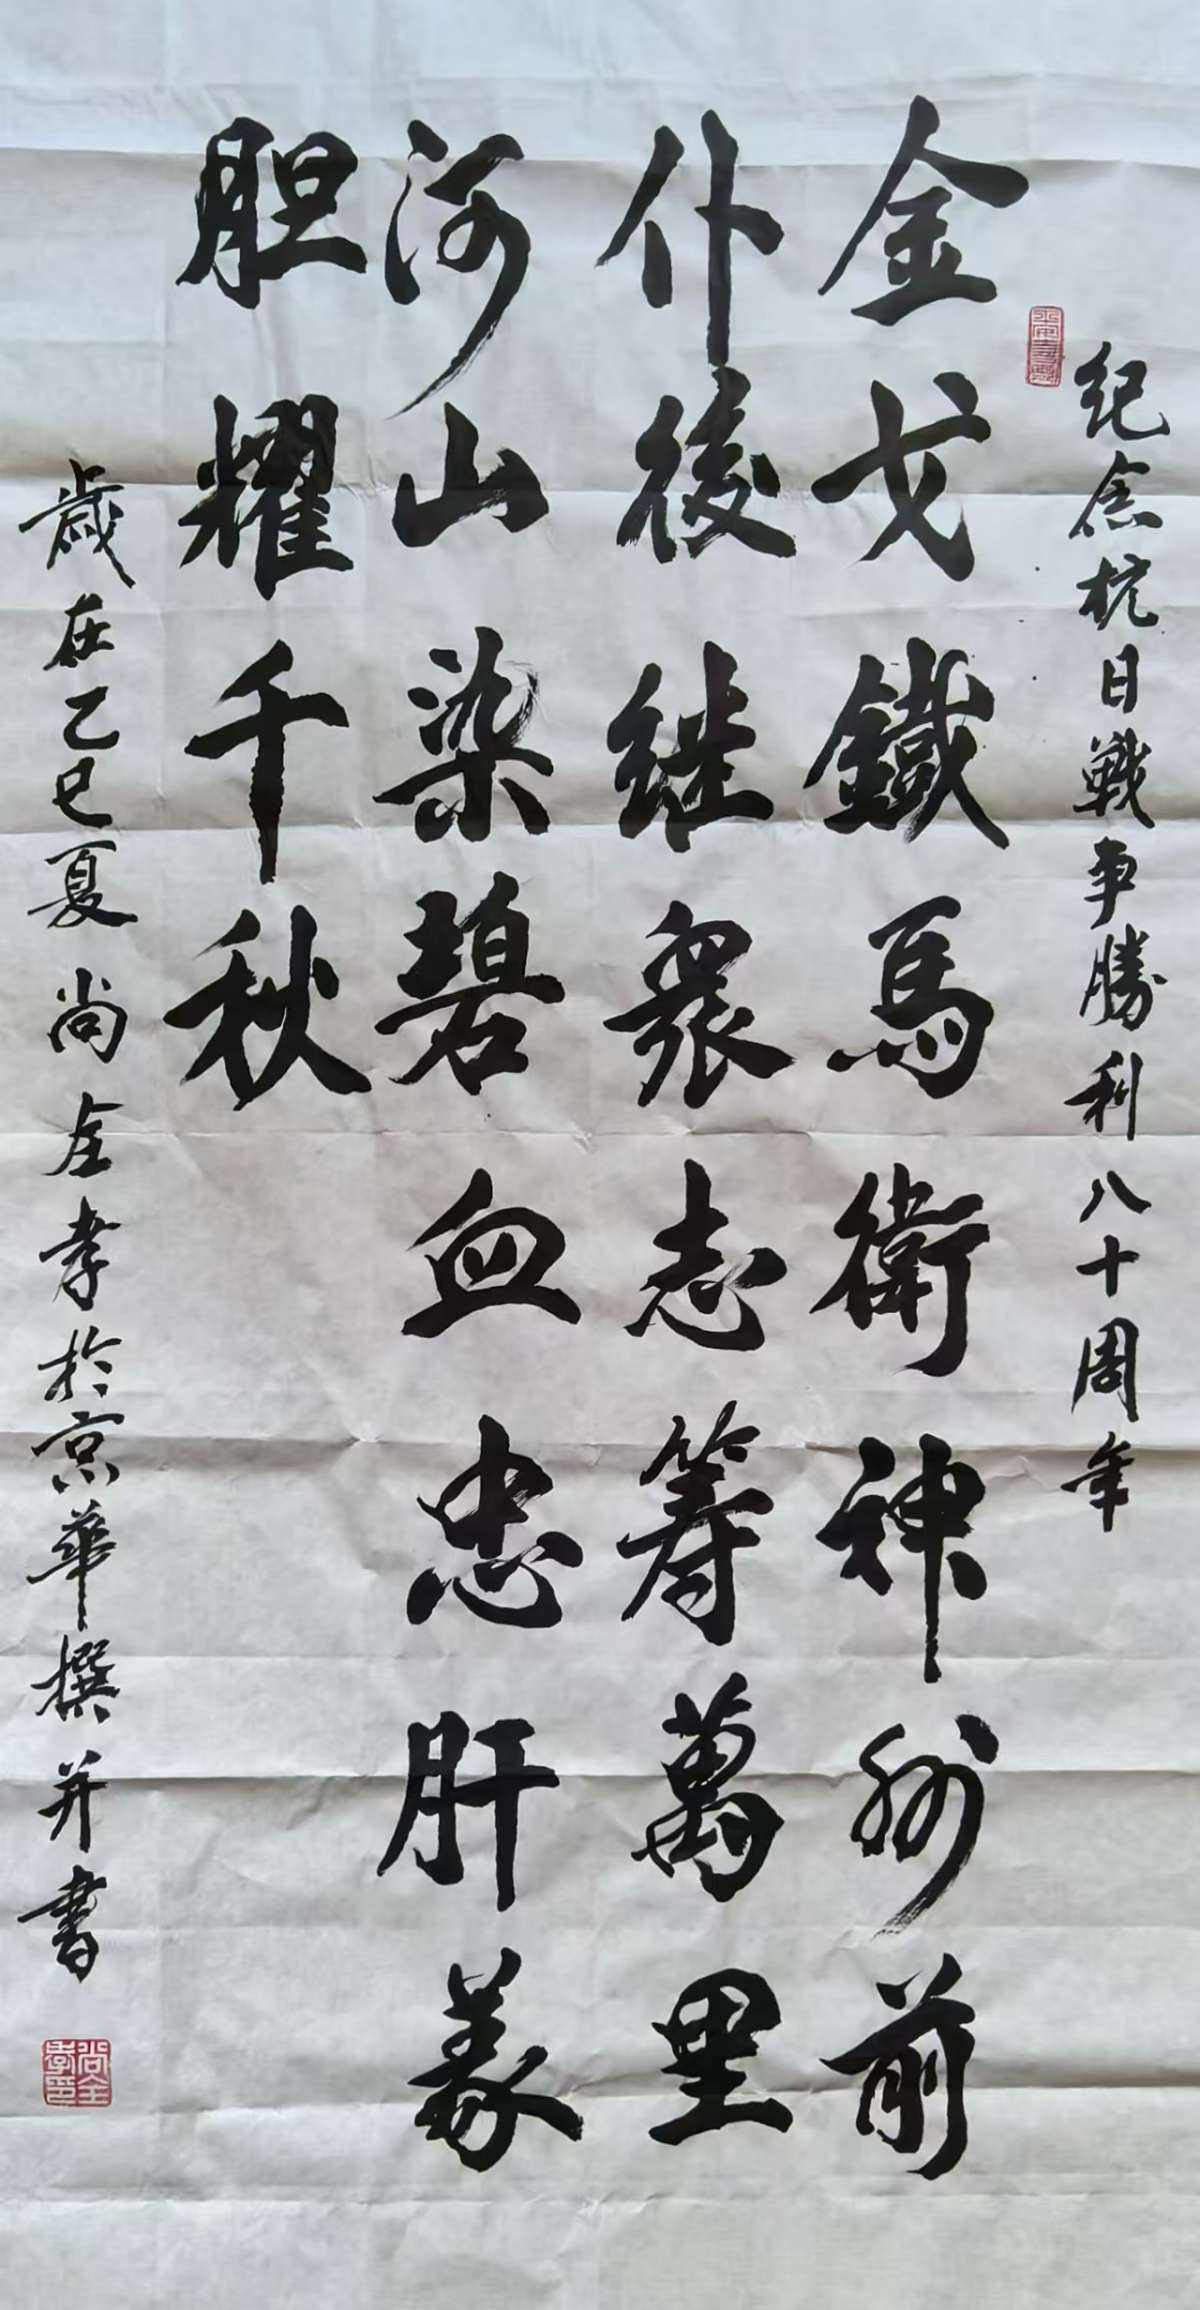 纪念抗日戰争勝利八十周年
金戈鐵馬衛神州前
仆後继衆志筹萬里
河山染碧血忠肝義
胆耀千秋
歲在乙巳夏尚全孝於京華撰并書
尚全孝印